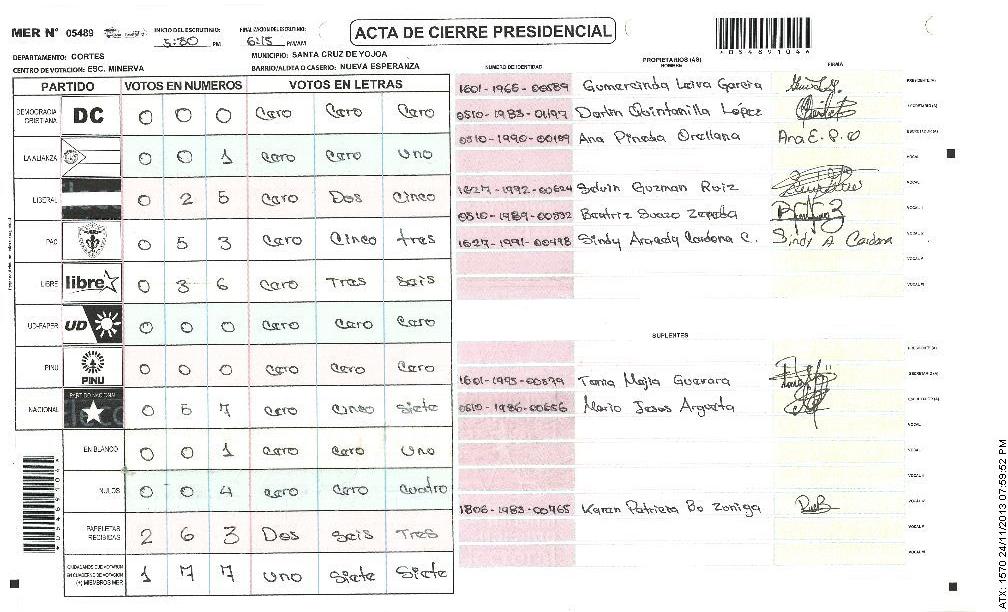 MER N° 05489 INICIO DEL ESCRUTINIO: 5:30 PM FINALIZACION DEL ESCRUTINIO: 6:15 PM/AM
ACTA DE CIERRE PRESIDENCIAL
DEPARTAMENTO: CORTES MUNICIPIO: SANTA CRUZ DE YOJOA
CENTRO DE VOTACION: ESC. MINERVA BARRIO/ALDEA O CASERIO: NUEVA ESPERANZA
PARTIDO VOTOS EN NUMEROS VOTOS EN LETRAS
DEMOCRACIA CRISTIANA DC 0 0 0 Cero Cero Cero
LA ALIANZA 0 0 1 Cero Cero Uno
LIBERAL 0 2 5 Cero Dos Cinco
PAC 0 5 3 Cero Cinco tres
LIBRE libre 0 3 6 Cero Tres Seis
UD-FAPER UD 0 0 0 Cero Cero Cero
PINU PINU 0 0 0 Cero Cero Cero
NACIONAL PARTIDO NACIONAL 0 5 7 Cero Cinco Siete
EN BLANCO 0 0 1 Cero Cero Uno
NULOS 0 0 4 Cero Cero Cuatro
PAPELETAS RECIBIDAS 2 6 3 Dos Seis Tres
CIUDADANOS QUE VOTARON EN CUADERNO DE VOTACION (+) MIEMBROS MER 1 7 7 Uno Siete Siete
PROPIETARIOS (AS)
NUMERO DE IDENTIDAD NOMBRE FIRMA
1601-1966-00589 Gumercinda Leiva Garcia PRESIDENTE (A)
0510-1983-01197 Darlin Quintanilla López SECRETARIO (A)
0510-1990-00109 Ana Pineda Orellana Ana E. P. O ESCRUTADOR (A)
VOCAL
1627-1992-00624 Selvin Guzman Ruiz VOCAL
0510-1989-00332 Beatriz Suazo Zepeda VOCAL
1627-1991-00498 Sindy Cardona C. Sindy A Cardona VOCAL
VOCAL
VOCAL
SUPLENTES
PRESIDENTE (A)
1601-1995-00579 Tania Mejia Guevara SECRETARIO (A)
0510-1986-00656 Mario Jesus Argueta ESCRUTADOR (A)
VOCAL
VOCAL
VOCAL
1806-1983-00465 Karen Patricia Bo Zoniga VOCAL
VOCAL
VOCAL
05489104
ATX: 1570 24/11/2013 07:59:52 PM